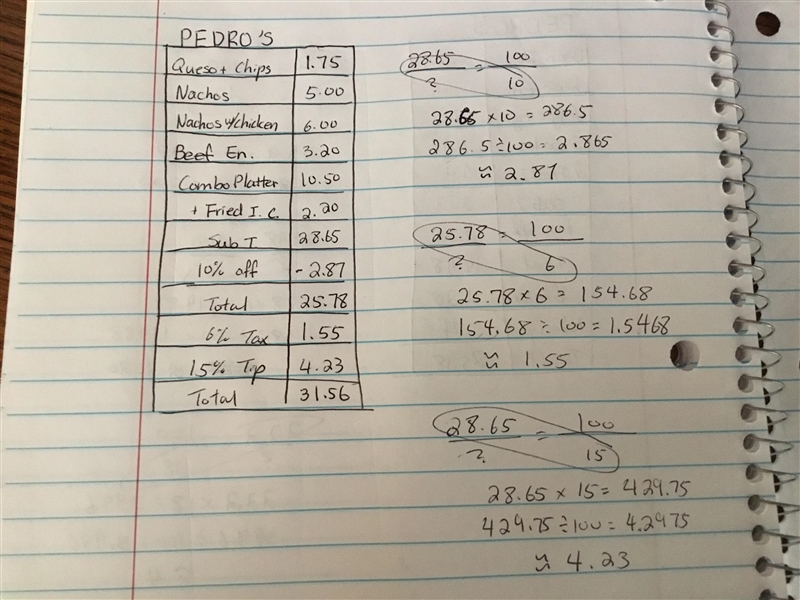 PEDRO'S
Queso + Chips 1.75
Nachos 5.00
Nachos w/chicken 6.00
Beef En. 3.20
Combo Platter 10.50
+ Fried I.C. 2.20
Sub T 28.65
10% off -2.87
Total 25.78
6% Tax 1.55
15% Tip 4.23
Total 31.56
28.65 = 100
? 10
28.65 × 10 = 286.5
286.5 ÷ 100 = 2.865
≈ 2.87
25.78 = 100
? 6
25.78 × 6 = 154.68
154.68 ÷ 100 = 1.5468
≈ 1.55
28.65 = 100
? 15
28.65 × 15 = 429.75
429.75 ÷ 100 = 4.2975
≈ 4.23